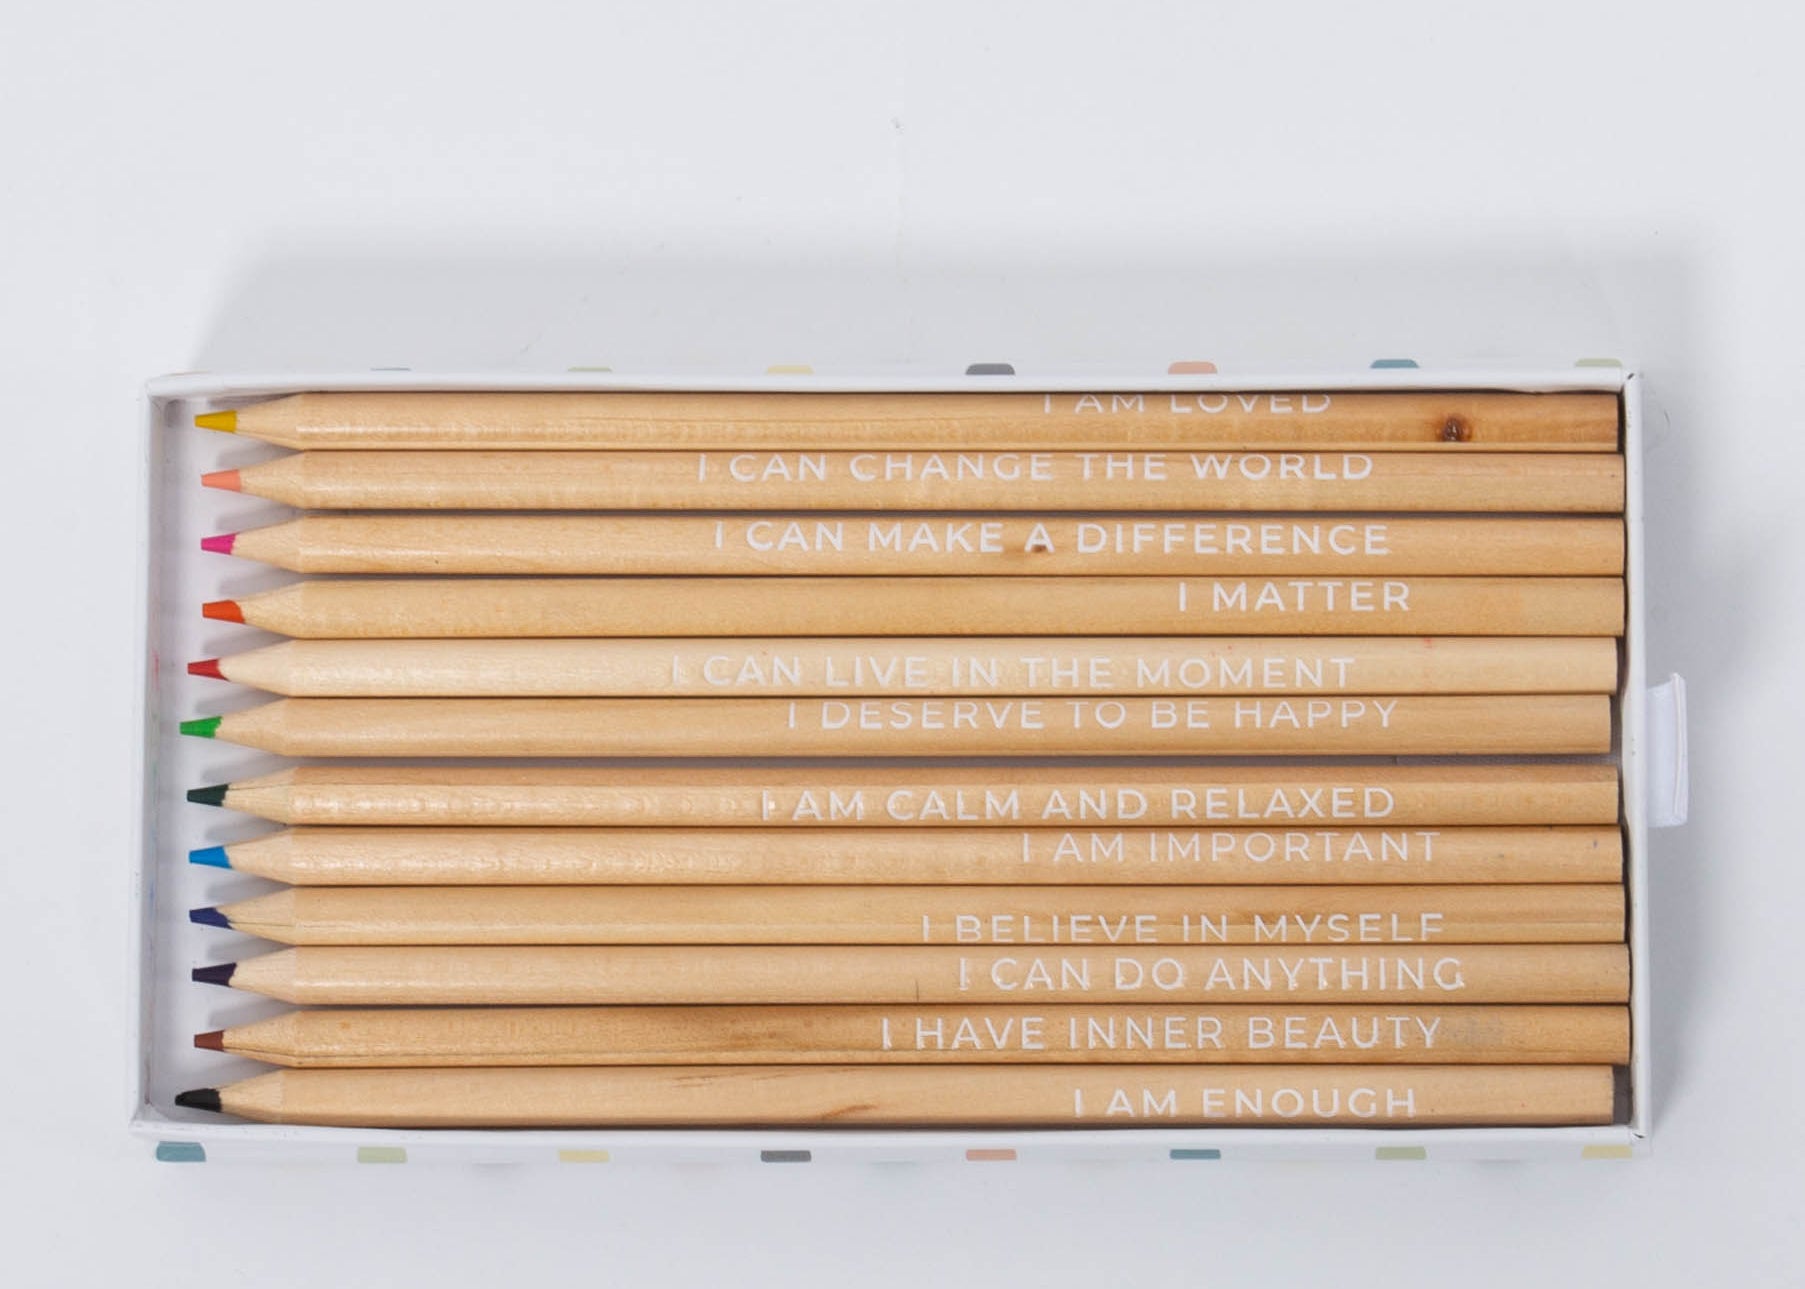 I AM LOVED
I CAN CHANGE THE WORLD
I CAN MAKE A DIFFERENCE
I MATTER
I CAN LIVE IN THE MOMENT
I DESERVE TO BE HAPPY
I AM CALM AND RELAXED
I AM IMPORTANT
I BELIEVE IN MYSELF
I CAN DO ANYTHING
I HAVE INNER BEAUTY
I AM ENOUGH